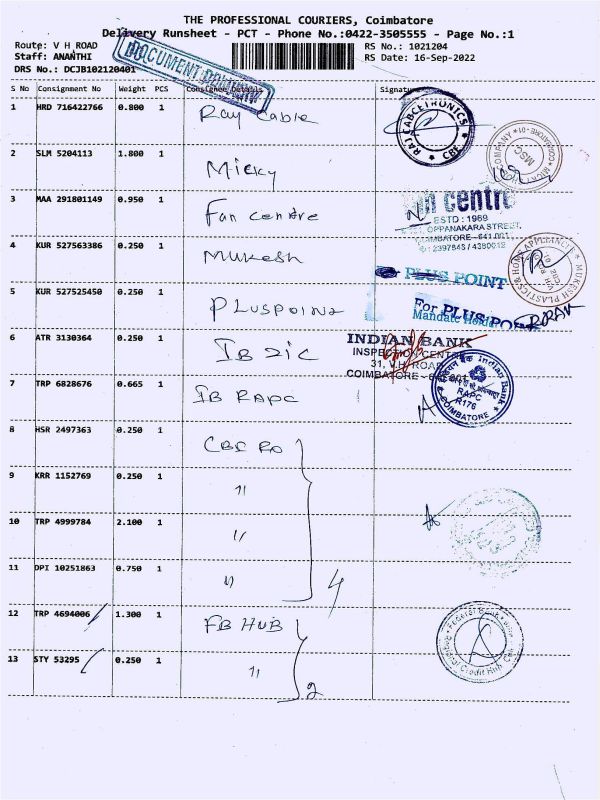 THE PROFESSIONAL COURIERS, Coimbatore
Delivery Runsheet - PCT - Phone No.:0422-3505555 - Page No.:1
Route: V H ROAD
Staff: ANANTHI
DRS No.: DCJB102120401
RS No.: 1021204
RS Date: 16-Sep-2022
DOCUMENT
S No Consignment No Weight PCS Consignee Details Signature
1 HRD 716422766 0.800 1 Ray Cable
RAJ CABCETRONICS * CBE *
2 SLM 5204113 1.800 1 Micky
COMPANY * COIMBATORE - 01 * MSC
3 MAA 291801149 0.950 1 Fan centre
n centre
ESTD : 1969
OPPANAKARA STREET,
COIMBATORE - 641 001
4 KUR 527563386 0.250 1 Mukesh
MUKESH PLASTICS & HOME APPLIANCES
PLUS POINT
5 KUR 527525450 0.250 1 PLUSPOINT
For PLUS POINT
Mandate Holder
6 ATR 3130364 0.250 1 IB ZIC
INDIAN BANK
INSPECTION CENTRE
31, V.H. ROAD
COIMBATORE
7 TRP 6828676 0.665 1 IB RAPC
Indian Bank
RAPC
R176
COIMBATORE
8 HSR 2497363 0.250 1 CBE RO
9 KRR 1152769 0.250 1 "
10 TRP 4999784 2.100 1 "
11 DPI 10251863 0.750 1 "
4
12 TRP 4694006 1.300 1 FB HUB
Federal Bank
Credit Hub
13 STY 53295 0.250 1 "
2